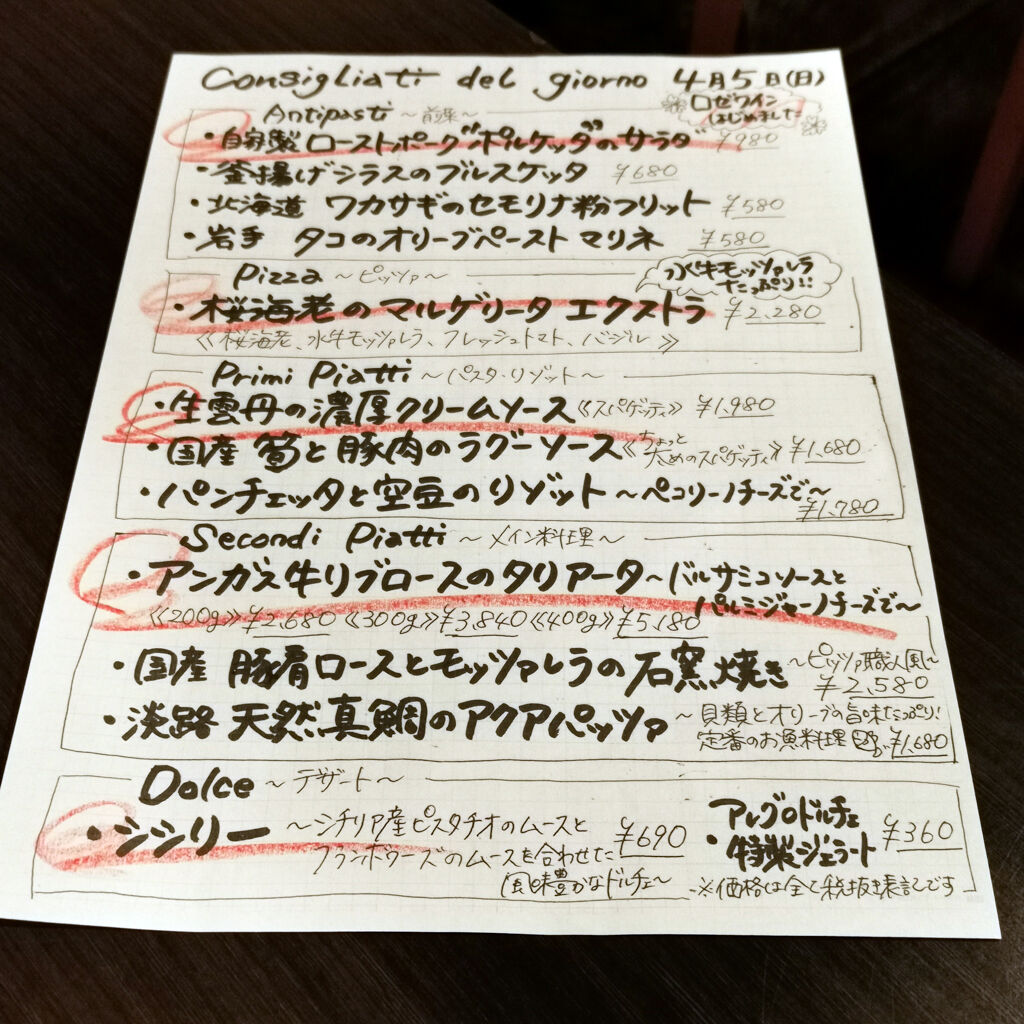 Consigliati del giorno 4月5日(日)
ロゼワイン
はじめました
Antipasti ~前菜~
・自家製 ローストポーク"ポルケッタ"のサラダ ¥980
・釜揚げシラスのブルスケッタ ¥680
・北海道 ワカサギのセモリナ粉フリット ¥580
・岩手 タコのオリーブペースト マリネ ¥580
Pizza ~ピッツァ~
水牛モッツァレラ
たっぷり!!
・桜海老のマルゲリータ エクストラ ¥2,280
《桜海老、水牛モッツァレラ、フレッシュトマト、バジル》
Primi Piatti ~パスタ・リゾット~
・生雲丹の濃厚クリームソース《スパゲッティ》 ¥1,980
・国産 筍と豚肉のラグーソース《ちょっと太めのスパゲッティ》 ¥1,680
・パンチェッタと空豆のリゾット ~ペコリーノチーズで~
¥1,780
Secondi Piatti ~メイン料理~
・アンガス牛リブロースのタリアータ~バルサミコソースと
パルミジャーノチーズで~
《200g》¥2,680 《300g》¥3,840 《400g》¥5,180
・国産 豚肩ロースとモッツァレラの石窯焼き ~ピッツァ職人風~
¥2,580
・淡路 天然真鯛のアクアパッツァ ~貝類とオリーブの旨味たっぷり!
定番のお魚料理 ¥1,680
Dolce ~デザート~
・シシリー ~シチリア産ピスタチオのムースと
フランボワーズのムースを合わせた
風味豊かなドルチェ~
¥690
アレグロドルチェ
・特製ジェラート ¥360
※価格は全て税抜表記です